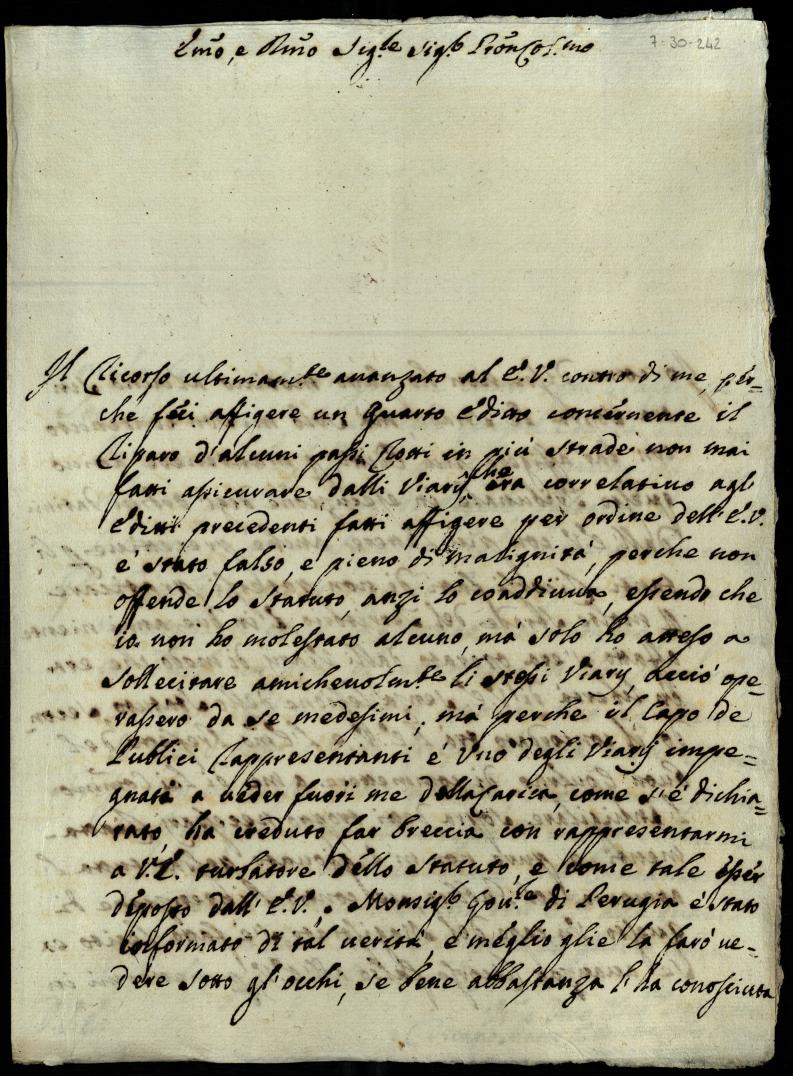 Emo, e Rmo Sig.re Sig.r Pron Col.mo
7-30-242
Il Ricorso ultimam.te auanzato al E.V. contro di me, per=
che feci affigere un quarto Editto concernente il
Riparo d'alcuni passi Rotti in più strade non mai
fatti assicurare dalli Viarij, che era correlatiuo agl'
Editti precedenti fatti affigere per ordine dell'E.V.
è stato falso, e pieno di malignità, perche non
offende lo Statuto, anzi lo coaddiuua, essendo che
io non ho molestato alcuno, mà solo ho atteso a
sollecitare amicheuolm.te li stessi Viarij, acciò ope=
rassero da se medesimi; mà perche il Capo de
Publici Rappresentanti è Vno degli Viarij impe=
gnati a ueder fuori me della Carica, come s'è dichia=
rato, ha creduto far breccia con rappresentarmi
a V.E. turbatore dello Statuto, e come tale esser
deposto dall'E.V., Monsig.r Gou.re di Perugia è stato
informato di tal uerità, e meglio glie la farò ue=
dere sotto gl'occhi, se bene abbastanza l'ha conosciuta